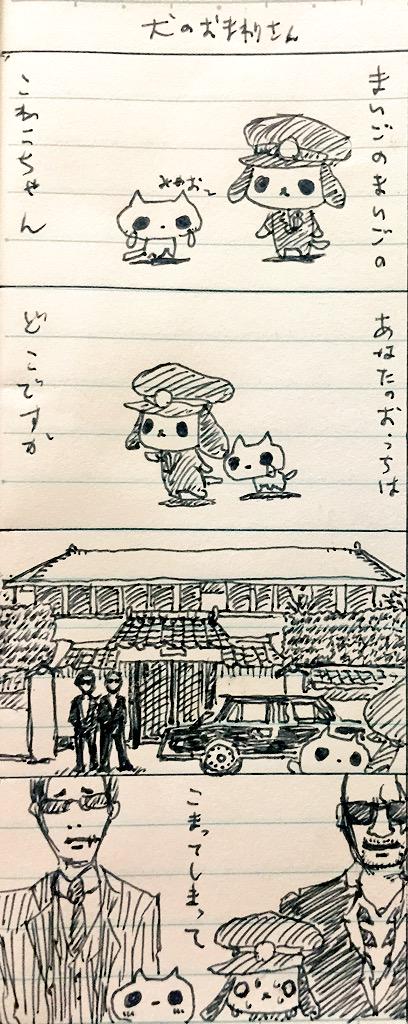 犬のおまわりさん
まいごのまいごの
みゃお〜
こねこちゃん
あなたのおうちは
どこですか
こまってしまって